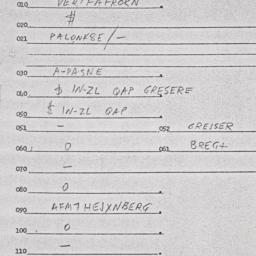 010
020 $
021 PALONKSE/-
030 A-PASNE
040 $ IN-ZL QAP GRESERE
050 $ IN-ZL QAP
051 - 052 GREISER
060 0 061 BREGT
070 -
080 0
090 AFMTHEJXNBERG
100 0
110 -